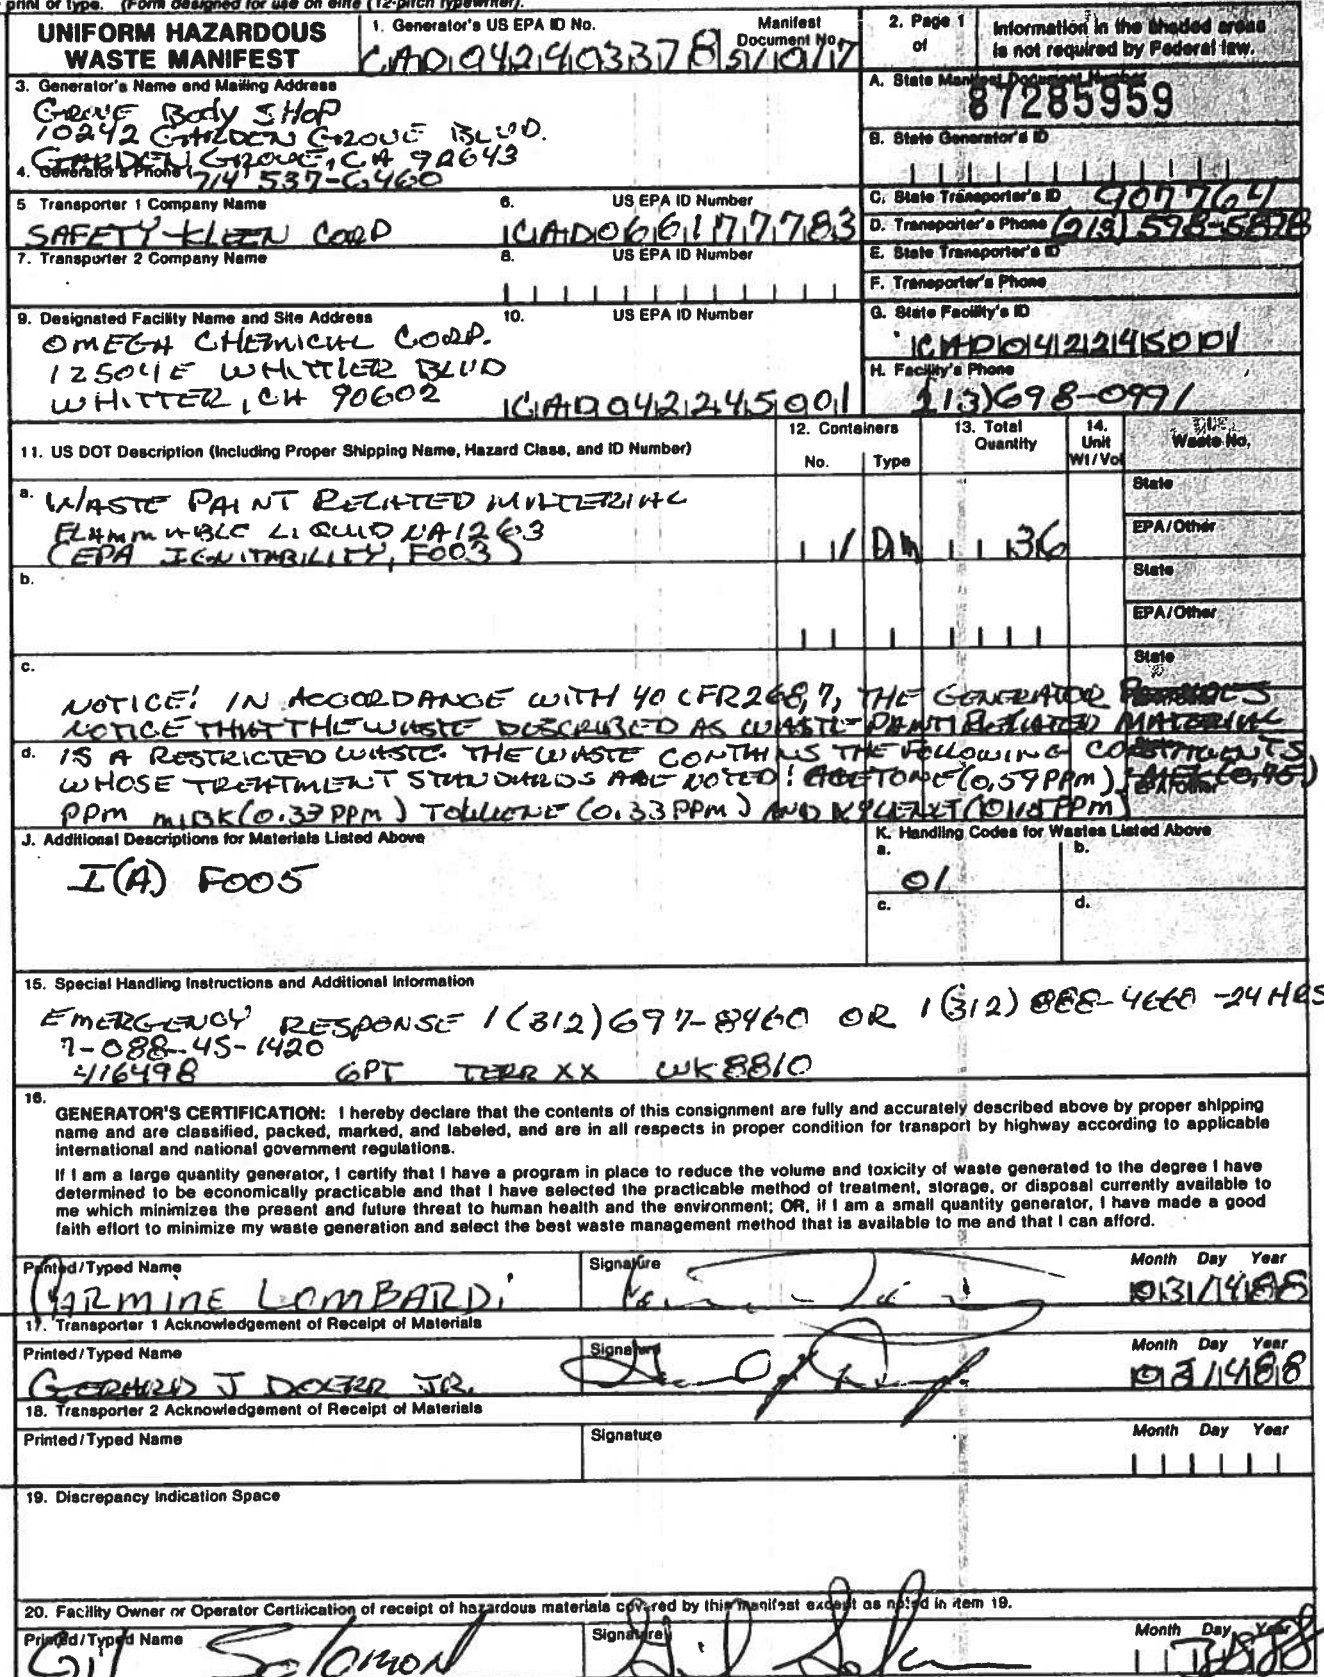 print or type. (Form designed for use on elite (12-pitch typewriter).
UNIFORM HAZARDOUS
WASTE MANIFEST
1. Generator's US EPA ID No.
CAD042403378
Manifest
Document No.
2. Page 1
of
Information in the shaded areas
is not required by Federal law.
3. Generator's Name and Mailing Address
GROVE Body SHOP
10242 GARDEN GROVE BLVD.
GARDEN GROVE, CA 92643
4. Generator's Phone ( 714 537-6460
A. State Manifest Document Number
87285959
B. State Generator's ID
5 Transporter 1 Company Name
SAFETY-KLEEN CORP
6. US EPA ID Number
CAD066177783
C. State Transporter's ID 907764
D. Transporter's Phone (213) 598-5878
7. Transporter 2 Company Name
8. US EPA ID Number
E. State Transporter's ID
F. Transporter's Phone
9. Designated Facility Name and Site Address
OMEGA CHEMICAL CORP.
12504 E WHITTIER BLVD
WHITTER, CA 90602
10. US EPA ID Number
CAD042245001
G. State Facility's ID
CAD042245001
H. Facility's Phone
213)698-0991
11. US DOT Description (Including Proper Shipping Name, Hazard Class, and ID Number)
12. Containers
No. Type
13. Total
Quantity
14.
Unit
Wt/Vol
Waste No.
a. WASTE PAINT RELATED MATERIAL
FLAMMABLE LIQUID NA1263
(EPA IGNITABILITY, F003)
1 DM 36
State
EPA/Other
b.
State
EPA/Other
c.
State
NOTICE! IN ACCORDANCE WITH 40 CFR268,7, THE GENERATOR PROVIDES
NOTICE THAT THE WASTE DESCRIBED AS WASTE PAINT RELATED MATERIAL
d. IS A RESTRICTED WASTE. THE WASTE CONTAINS THE FOLLOWING CONSTITUENTS
WHOSE TREATMENT STANDARDS ARE NOTED! ACETONE (0,59 PPM) MEK (0,75)
EPA/Other
PPM MIBK (0.33 PPM) TOLUENE (0.33 PPM) AND XYLENE (0.15 PPM)
J. Additional Descriptions for Materials Listed Above
I(A) F005
K. Handling Codes for Wastes Listed Above
a. 01
b.
c.
d.
15. Special Handling Instructions and Additional Information
EMERGENCY RESPONSE 1(312)697-8460 OR 1(312) 888-4660 -24 HRS
7-088-45-1420
416498 GPT TERR XX WK 8810
16.
GENERATOR'S CERTIFICATION: I hereby declare that the contents of this consignment are fully and accurately described above by proper shipping
name and are classified, packed, marked, and labeled, and are in all respects in proper condition for transport by highway according to applicable
international and national government regulations.
If I am a large quantity generator, I certify that I have a program in place to reduce the volume and toxicity of waste generated to the degree I have
determined to be economically practicable and that I have selected the practicable method of treatment, storage, or disposal currently available to
me which minimizes the present and future threat to human health and the environment; OR, if I am a small quantity generator, I have made a good
faith effort to minimize my waste generation and select the best waste management method that is available to me and that I can afford.
Printed/Typed Name
CARMINE LOMBARDi
Signature
Month Day Year
031488
17. Transporter 1 Acknowledgement of Receipt of Materials
Printed/Typed Name
GERHARD J DOXER JR.
Signature
Month Day Year
031488
18. Transporter 2 Acknowledgement of Receipt of Materials
Printed/Typed Name
Signature
Month Day Year
19. Discrepancy Indication Space
20. Facility Owner or Operator Certification of receipt of hazardous materials covered by this manifest except as noted in item 19.
Printed/Typed Name
Gil Solomon
Signature
Month Day Year